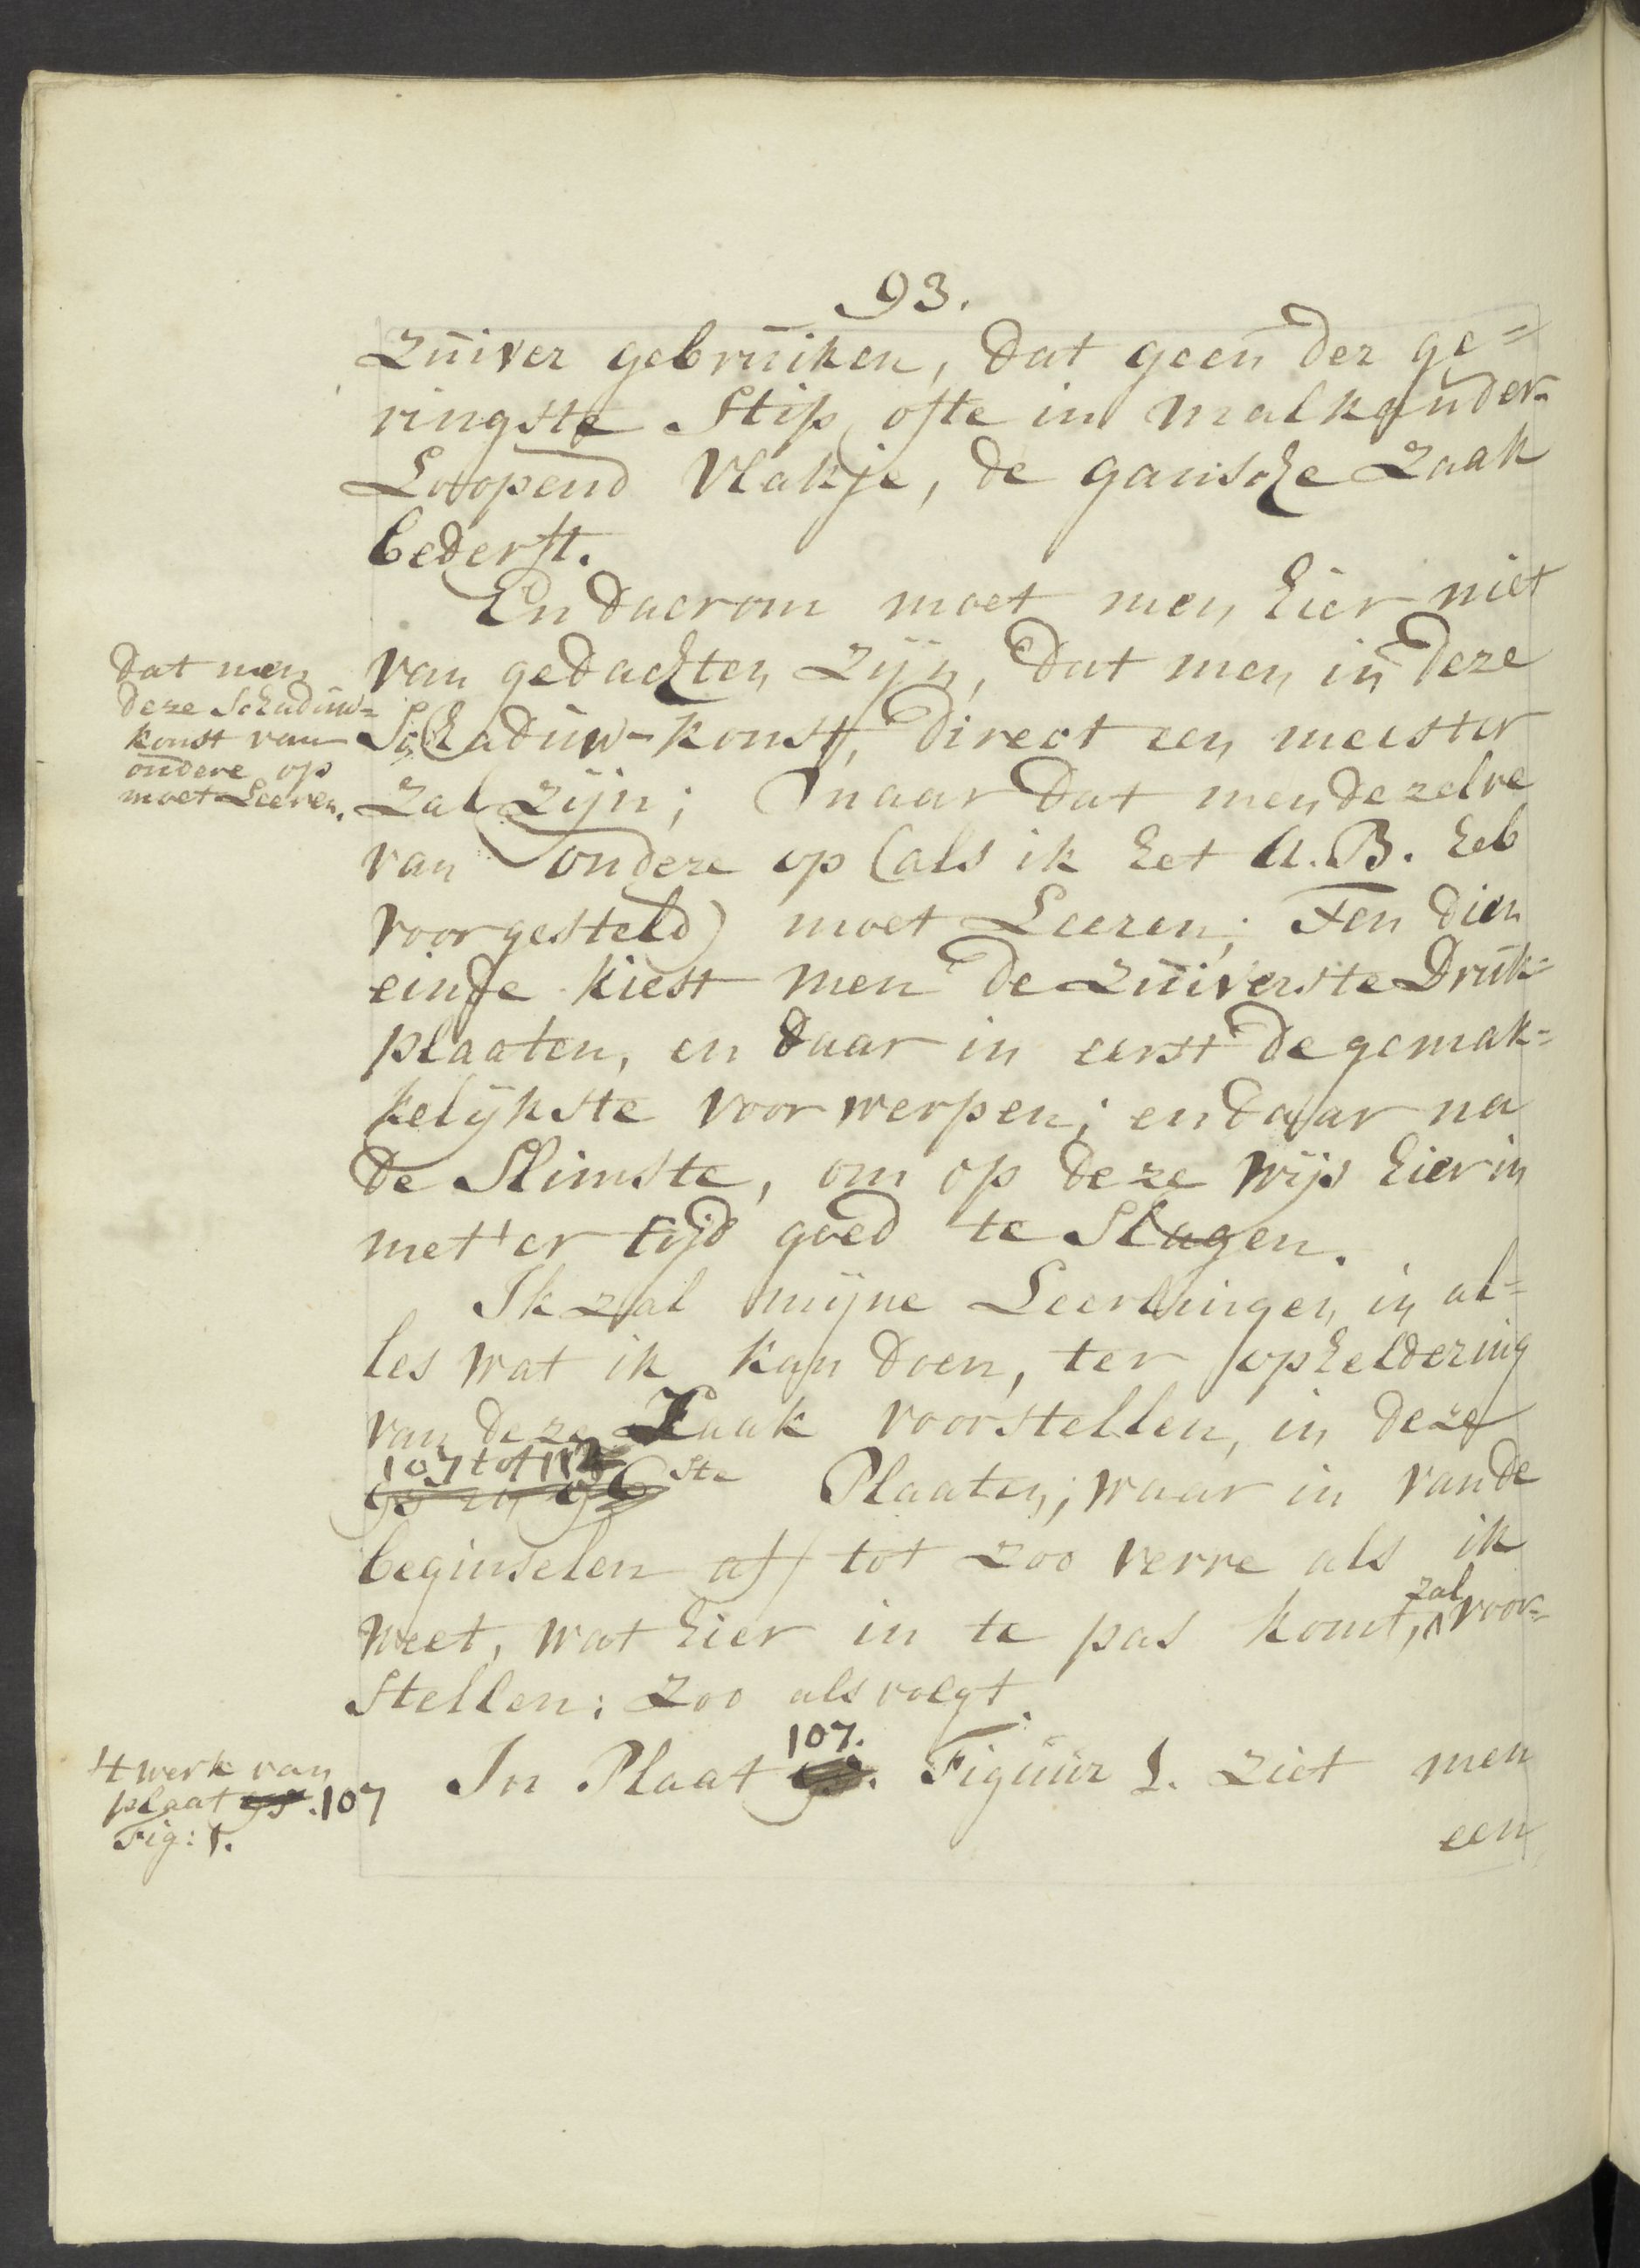 93.
Zuiver gebruiken, dat geen der ge=
ringste Stip, ofte in malkander-
Loopend Vlakje, de gansche zaak
bederft.
En daerom moet men hier niet
van gedachten zijn, dat men in deze
Schaduw-konst, direct een meester
zal zijn; maar dat men dezelve
van ondere op (als ik het A.B. heb
voorgesteld) moet Leeren; Ten dien
einde kiest men de zuiverste Druk=
plaaten, en daar in eerst de gemak=
kelijkste voorwerpen; en daar na
de Slimste, om op deze wijs hier in
met 'er tijd goed te Slagen.
Ik zal mijne Leerlingen, in al=
les wat ik kan doen, ter opheldering
van deze Zaak voorstellen, in deze
107 tot
ste Plaaten; waar in van de
beginselen af, tot zoo verre als ik
weet, wat hier in te pas komt, zal voor=
stellen; zoo als volgt.
In Plaat 107. Figuur 1. ziet men
een
dat men
deze schaduw=
konst van
ondere op
moet Leeren.
't werk van
plaat 95. 107
Fig: 1.